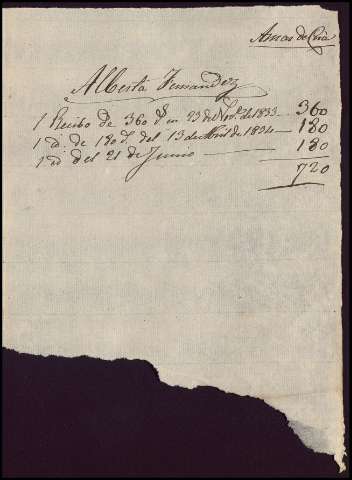 Amas de Cria
Alberta Fernandez
1 Recibo de 360 rs en 23 de Nove. de 1833 360
1 id. de 180 rs. del 13 de Abril de 1834 180
1 id del 21 de Junio 180
720